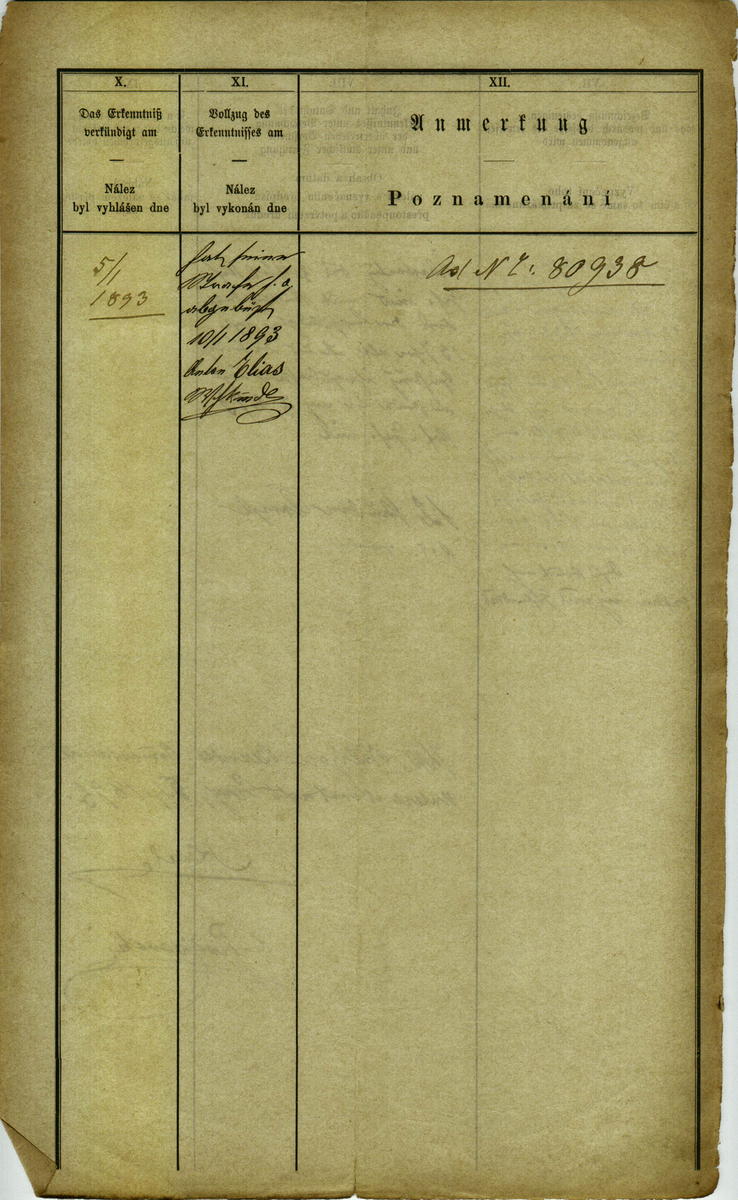 X.
Das Erkenntniß
verkündigt am
Nález
byl vyhlášen dne
5/1
1893
XI.
Vollzug des
Erkenntnisses am
Nález
byl vykonán dne
hat seine
Strafe
abgebüßt
10/1 1893
Anton Elias
XII.
Anmerkung
Poznamenání
Ad N E: 80938